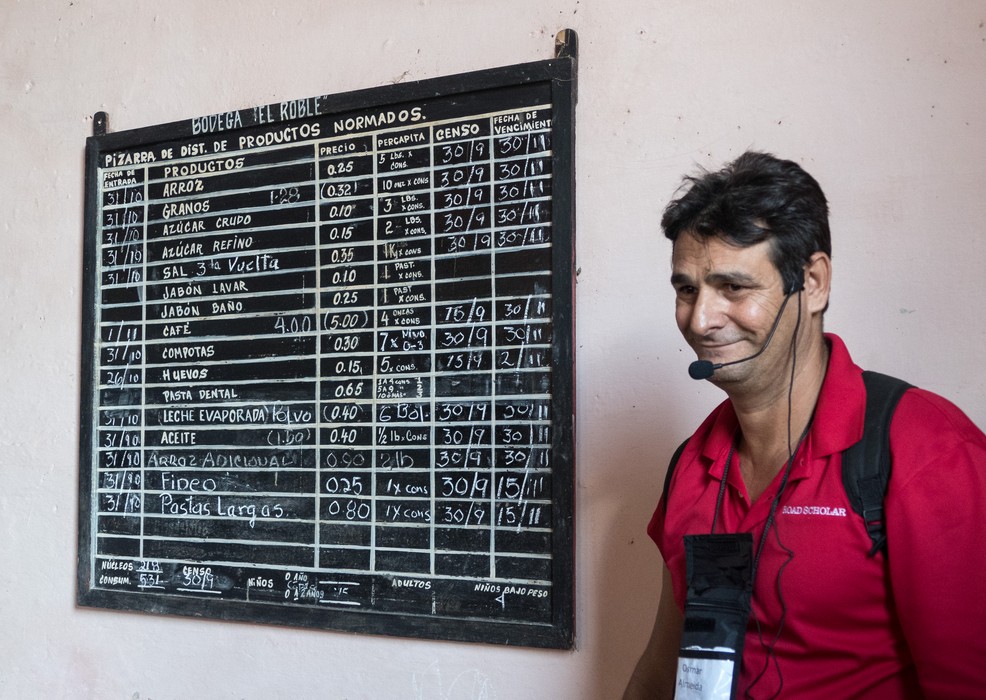 BODEGA "EL ROBLE"
PIZARRA DE DIST. DE PRODUCTOS NORMADOS.
FECHA DE ENTRADA PRODUCTOS PRECIO PERCAPITA CENSO FECHA DE VENCIMIENT
31/10 ARROZ 0.25 5 LBS. x CONS. 30/9 30/11
31/10 GRANOS 1.28 (0.32) 10 ONZ x CONS. 30/9 30/11
31/10 AZÚCAR CRUDO 0.10 3 LBS. x CONS. 30/9 30/11
31/10 AZÚCAR REFINO 0.15 2 LBS. x CONS. 30/9 30/11
31/10 SAL 3ra Vuelta 0.35 1 Kg x CONS 30/9 30/11
JABÓN LAVAR 0.10 1 PAST. x CONS.
JABÓN BAÑO 0.25 1 PAST x CONS.
1/11 CAFÉ 4.00 (5.00) 4 ONZAS x CONS 15/9 30/11
31/10 COMPOTAS 0.30 7 x NIÑO 0-3 30/9 30/11
26/10 HUEVOS 0.15 5 x CONS. 15/9 2/11
PASTA DENTAL 0.65
31/10 LECHE EVAPORADA Polvo (0.40) 6 Bol. 30/9 30/11
31/10 ACEITE 0.40 ½ lb x Cons 30/9 30/11
31/10 ARROZ ADICIONAL 0.90 2 lb 30/9 30/11
31/10 Fideo 0.25 1 x cons 30/9 15/11
31/10 Pastas Largas. 0.80 1 x cons 30/9 15/11
NÚCLEOS 218 CENSO NIÑOS 0 AÑO ADULTOS NIÑOS BAJO PESO
CONSUM. 531 30/9 15
ROAD SCHOLAR
Almeida